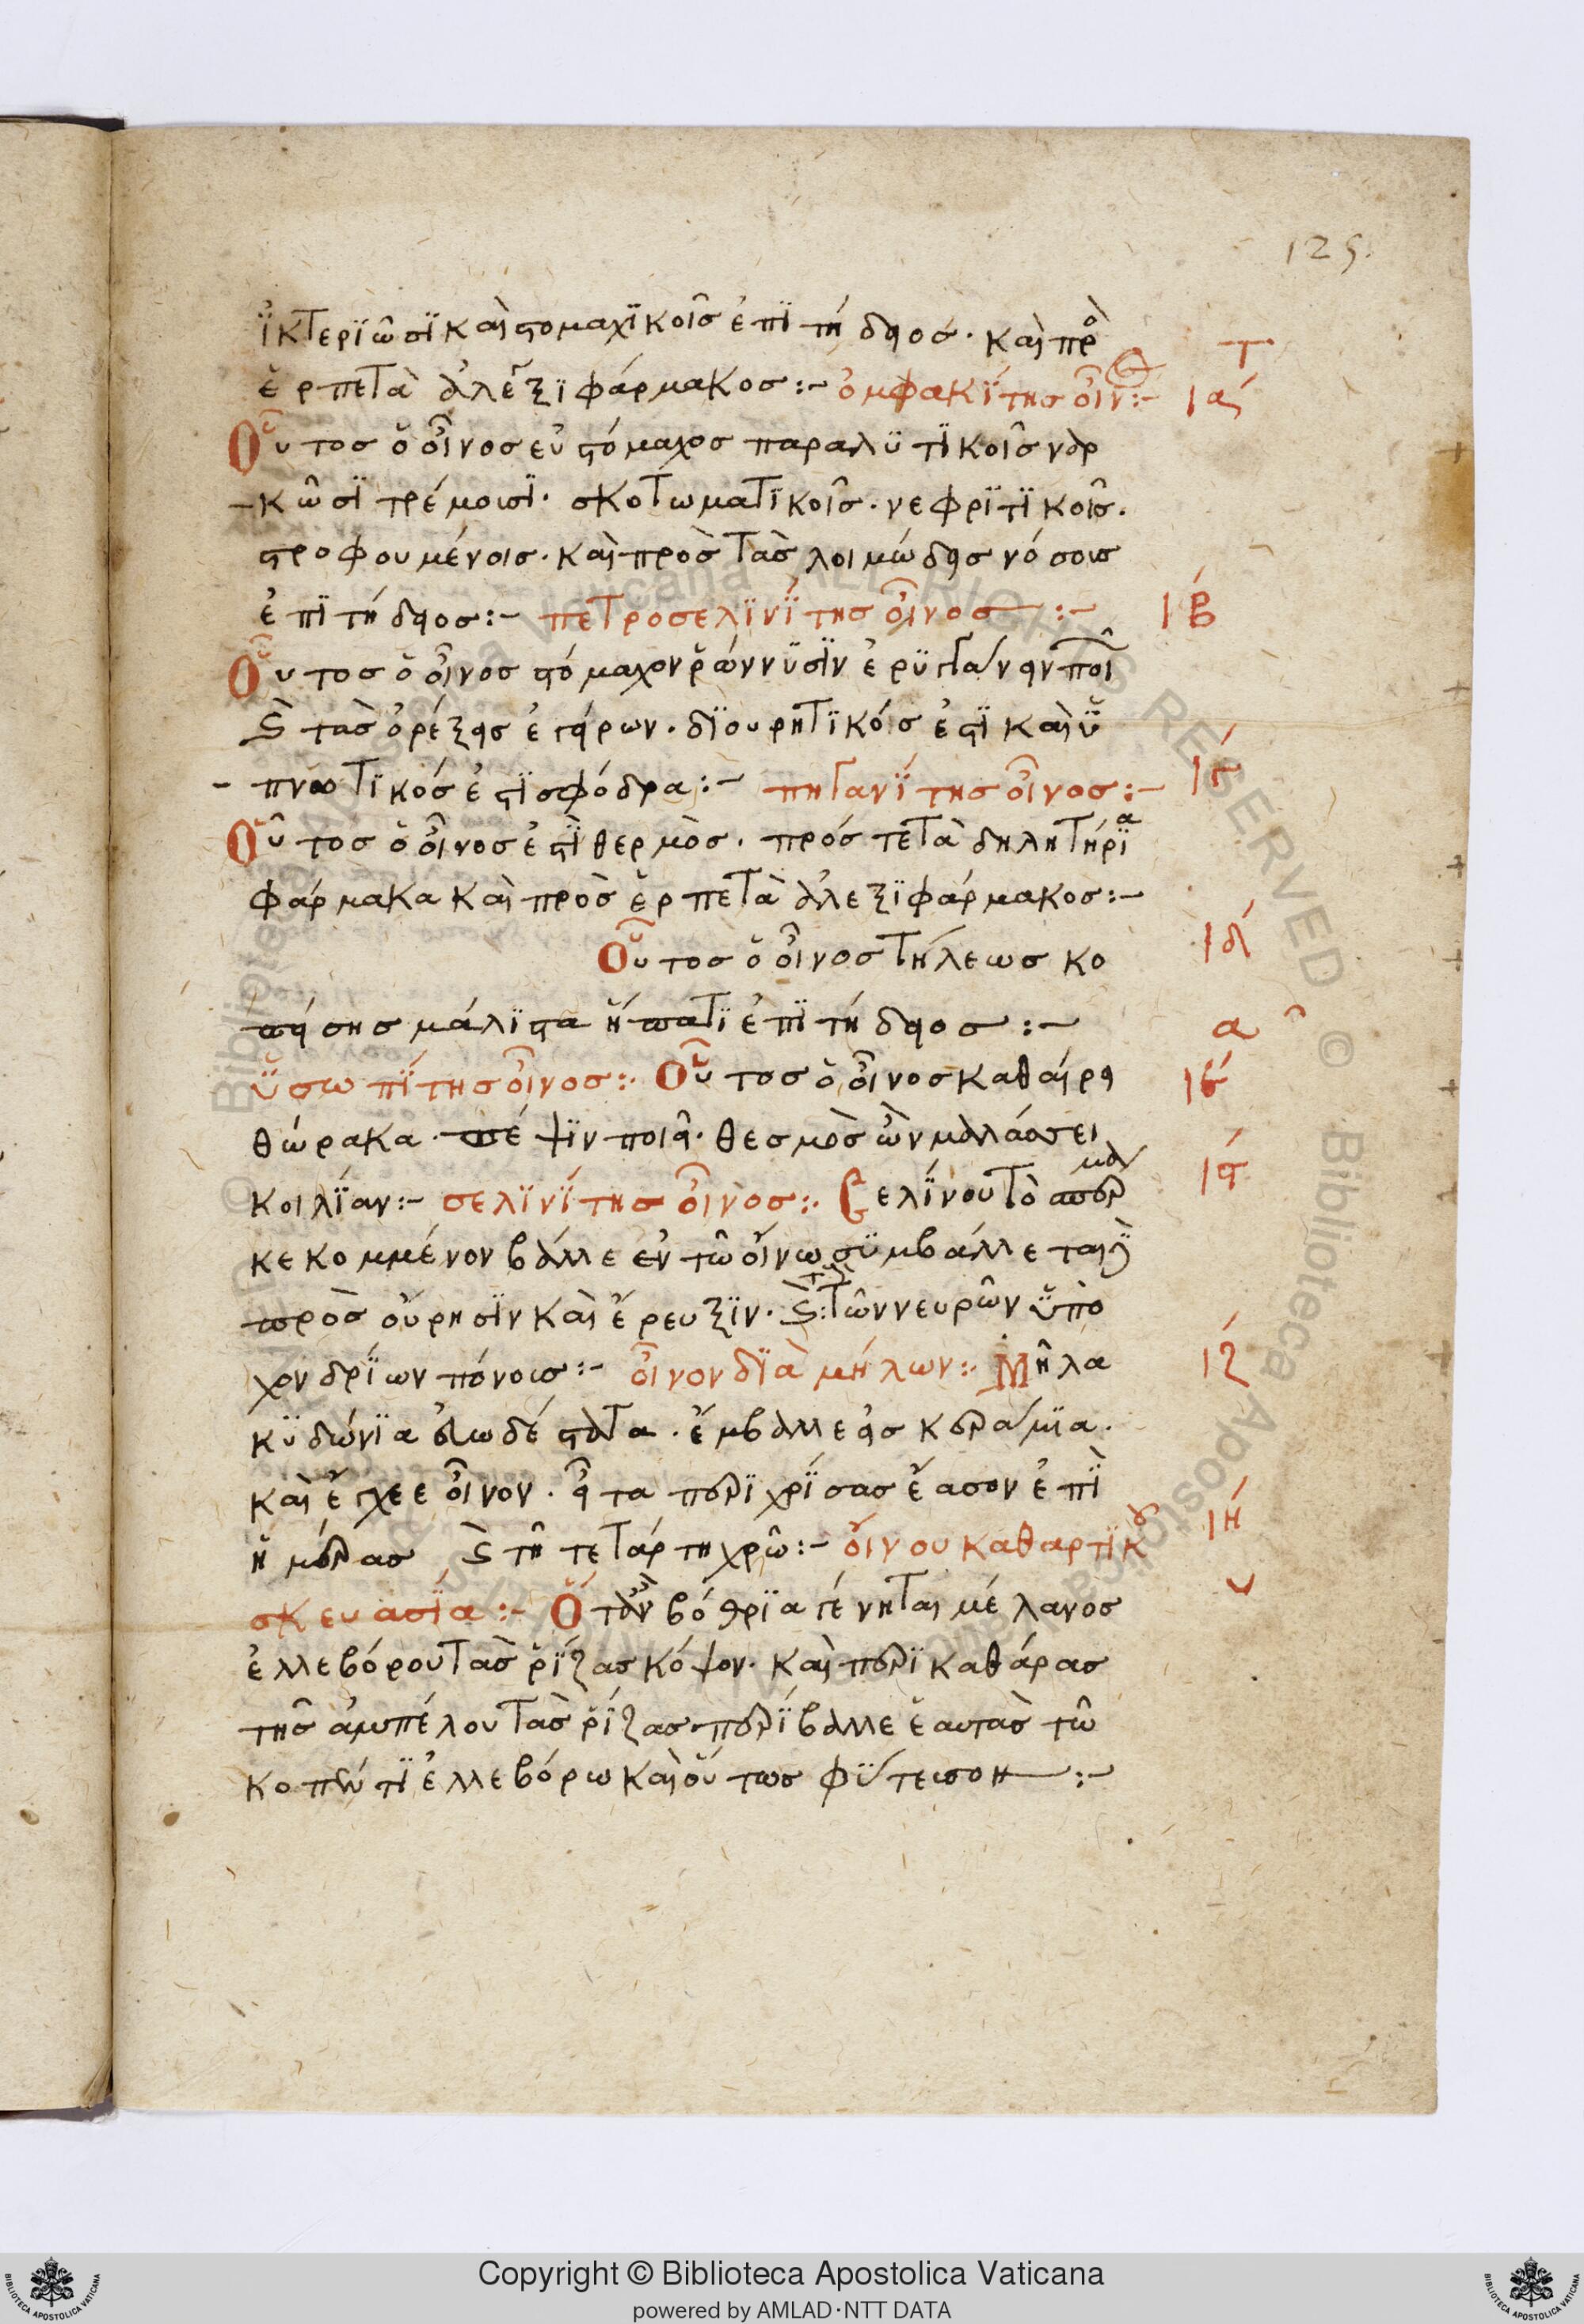 125.
ἰκτεριῶσι καὶ στομαχικοῖς ἐπιτήδειος· καὶ πρὸ
ἑρπετὰ ἀλεξιφάρμακος:- ὀμφακίτης οἶν:-
ια
Οὗτος ὁ οἶνος εὐστόμαχος παραλυτικοῖς ναρ
-κῶσι τρέμουσι· σκοτωματικοῖς· νεφριτικοῖς.
στροφουμένοις· καὶ πρὸς τὰς λοιμώδεις νόσους
ἐπιτήδειος:- πετροσελινίτης οἶνος:-
ιβ
Οὗτος ὁ οἶνος στόμαχον ῥώννυσιν
καὶ τὰς ὀρέξεις ἐγείρων· διουρητικός ἐστι καὶ ὑ
-πνωτικός ἐστι σφόδρα:- πηγανίτης οἶνος:-
ιγ
Οὗτος ὁ οἶνος ἐστὶ θερμὸς· πρός τε τὰ δηλητήρια
φάρμακα καὶ πρὸς ἑρπετὰ ἀλεξιφάρμακος:-
Οὗτος ὁ οἶνος τήλεως κο
ιδ
πείσης μάλιστα ἥπατι ἐπιτήδειος:-
ὑσωπίτης οἶνος:· Οὗτος ὁ οἶνος καθαίρει
ιε
θώρακα· πέψιν ποιεῖ· θεσμὸς ὢν μαλάσσει
κοιλίαν:- σελινίτης οἶνος:· Σελίνου τὸ σπέρμα
ις
κεκομμένον βάλλε ἐν τῶ οἴνω συμβάλλεται
πρὸς οὔρησιν καὶ ἔρευξιν· καὶ τῶν νευρῶν ὑπο
χονδρίων πόνους:- οἶνον διὰ μήλων:· Μῆλα
ιζ
κυδώνια ἔμβαλλε εἰς κεράμια.
καὶ ἔγχεε οἶνον· εἶτα περιχρίσας ἔασον ἐπὶ
ἡμέρας καὶ τῆ τετάρτη χρῶ:- οἴνου καθαρτικοῦ
ιη
σκευασία:- Ὅταν βόθρια γένηται μέλανος
ἐλλεβόρου τὰς ῥίζας κόψον· καὶ περικαθάρας
τῆς ἀμπέλου τὰς ῥίζας περίβαλλε ἑαυτὰς τῶ
ἐλλεβόρω καὶ οὕτως